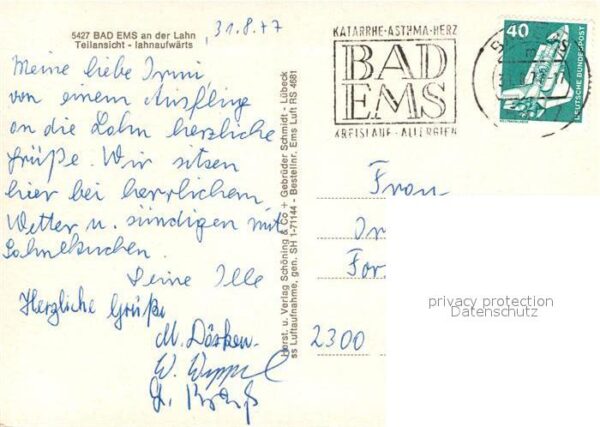 5427 BAD EMS an der Lahn
Teilansicht - lahnaufwärts
31.8.77
Meine liebe Irmi
von einem Ausfluge
an die Lahn herzliche
Grüße. Wir sitzen
hier bei herrlichem
Wetter u. sündigen mit
Sahnekuchen.
Deine Ille
Herzliche Grüße
M. Dörken
W. Wippel
Herst. u. Verlag Schöning & Co + Gebrüder Schmidt - Lübeck
ss Luftaufnahme, gen. SH 1-71144 - Bestellnr. Ems Luft RS 4681
KATARRHE-ASTHMA-HERZ
BAD
EMS
KREISLAUF-ALLERGIEN
40
DEUTSCHE BUNDESPOST
Frau
Ir
For
2300
privacy protection
Datenschutz